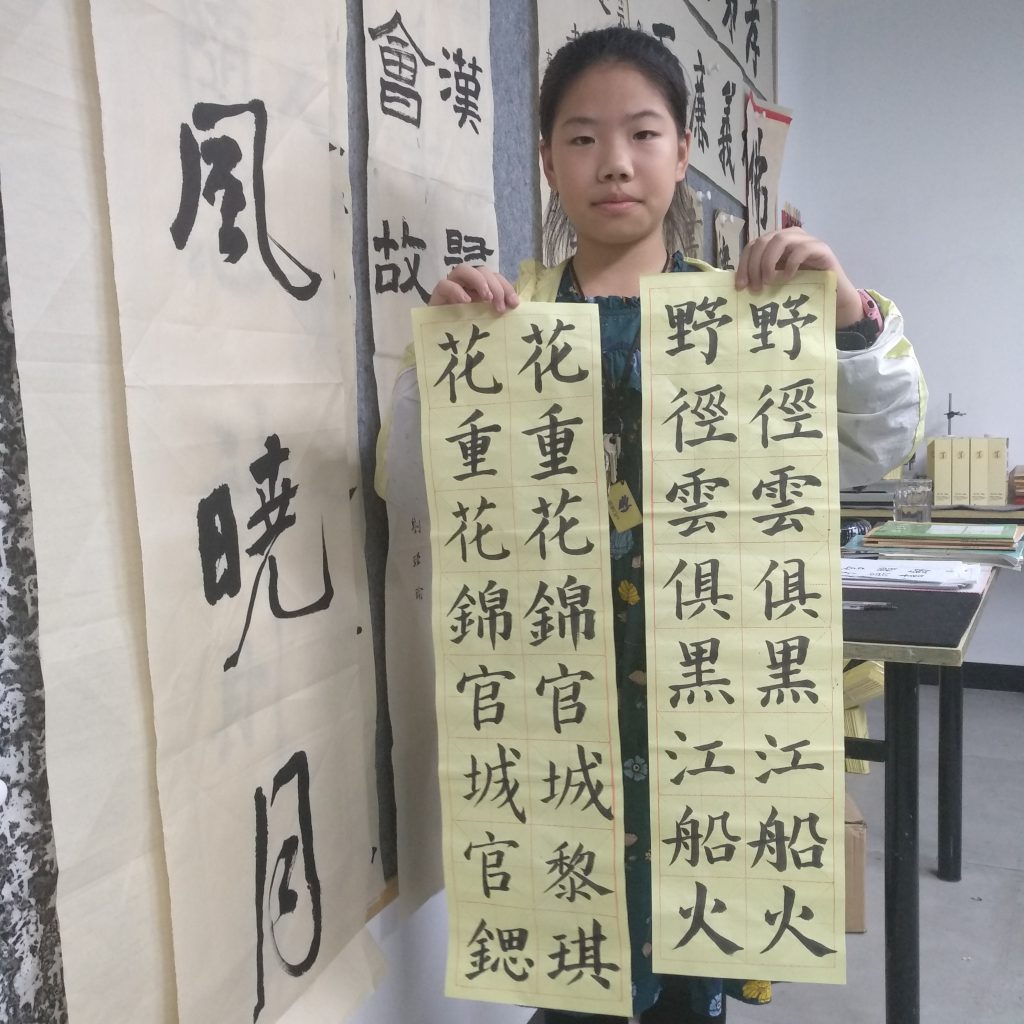 義
廉
佛
野徑雲俱黑江船火
野徑雲俱黑江船火
花重花錦官城黎琪
花重花錦官城官鍶
漢
會故
風曉月